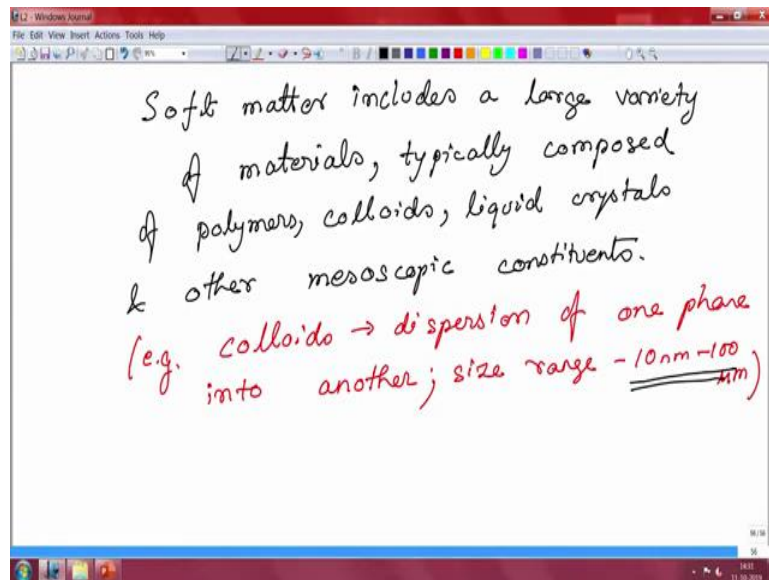 L2 - Windows Journal
File Edit View Insert Actions Tools Help
Soft matter includes a large variety
of materials, typically composed
of polymers, colloids, liquid crystals
& other mesoscopic constituents.
(e.g. colloids → dispersion of one phase
into another; size range - 10nm - 100
μm)
56/56
56
14:31